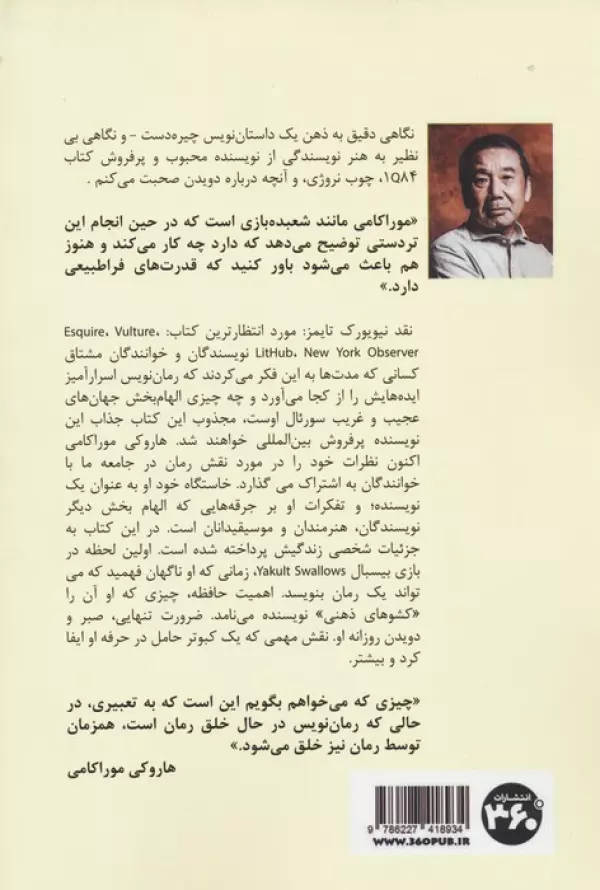 نگاهی دقیق به ذهن یک داستان‌نویس چیره‌دست - و نگاهی بی
نظیر به هنر نویسندگی از نویسنده محبوب و پرفروش کتاب
1Q84، چوب نروژی، و آنچه درباره دویدن صحبت می‌کنم .
«موراکامی مانند شعبده‌بازی است که در حین انجام این
تردستی توضیح می‌دهد که دارد چه کار می‌کند و هنوز
هم باعث می‌شود باور کنید که قدرت‌های فراطبیعی
دارد.»
نقد نیویورک تایمز: مورد انتظارترین کتاب: Esquire، Vulture،
LitHub، New York Observer نویسندگان و خوانندگان مشتاق
کسانی که مدت‌ها به این فکر می‌کردند که رمان‌نویس اسرارآمیز
ایده‌هایش را از کجا می‌آورد و چه چیزی الهام‌بخش جهان‌های
عجیب و غریب سورئال اوست، مجذوب این کتاب جذاب این
نویسنده پرفروش بین‌المللی خواهند شد. هاروکی موراکامی
اکنون نظرات خود را در مورد نقش رمان در جامعه ما با
خوانندگان به اشتراک می گذارد. خاستگاه خود او به عنوان یک
نویسنده؛ و تفکرات او بر جرقه‌هایی که الهام بخش دیگر
نویسندگان، هنرمندان و موسیقیدانان است. در این کتاب به
جزئیات شخصی زندگیش پرداخته شده است. اولین لحظه در
بازی بیسبال Yakult Swallows، زمانی که او ناگهان فهمید که می
تواند یک رمان بنویسد. اهمیت حافظه، چیزی که او آن را
«کشوهای ذهنی» نویسنده می‌نامد. ضرورت تنهایی، صبر و
دویدن روزانه او. نقش مهمی که یک کبوتر حامل در حرفه او ایفا
کرد و بیشتر.
«چیزی که می‌خواهم بگویم این است که به تعبیری، در
حالی که رمان‌نویس در حال خلق رمان است، همزمان
توسط رمان نیز خلق می‌شود.»
هاروکی موراکامی
انتشارات
۳۶۰
9 786227 418934
WWW.360PUB.IR